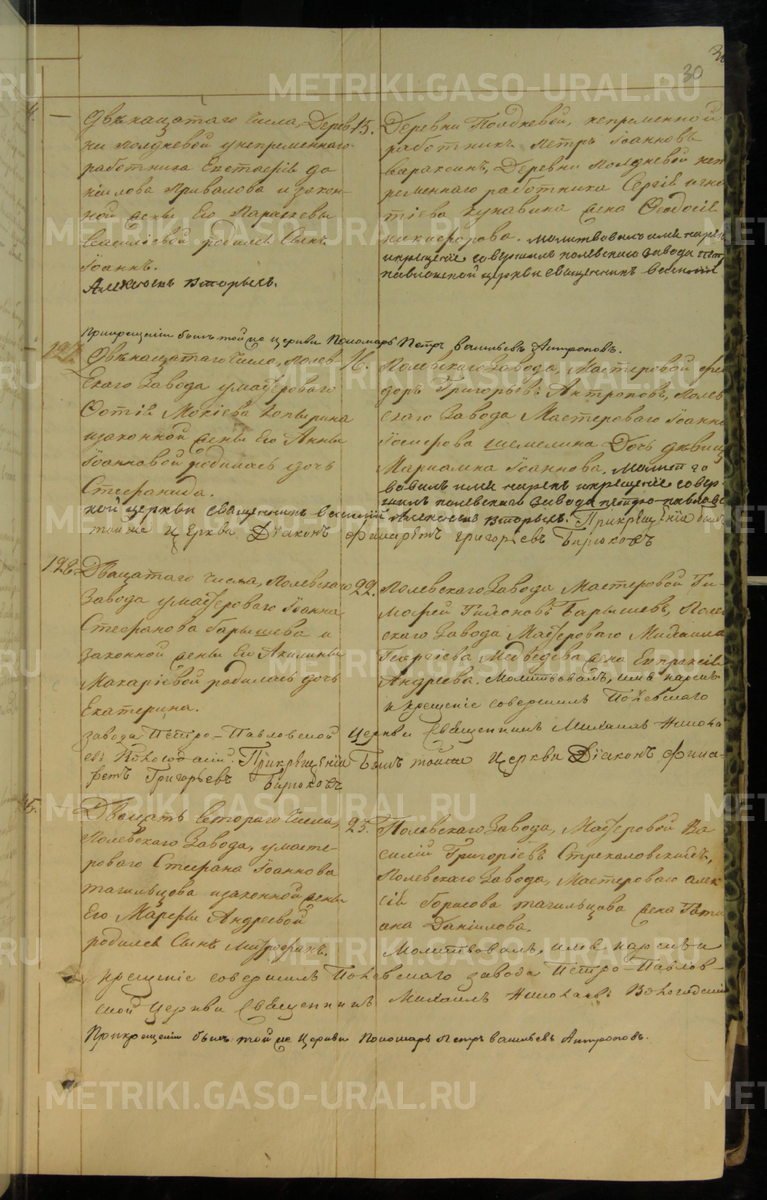 30
Двенацатаго числа, Дерев
ни Полдневой унепременнаго
работника Евстафия Да
ниилова Привалова и закон
ной жены Его Параскевы
Василіевой родился Сынъ
Іоаннъ.
15.
Деревни Полдневой непременной
работникъ Петръ Іоанновъ
Деревни Полдневой неп
ременнаго работника Сергія Игна
тіева Кунавина жена Феодосія
Никифорова. Молитвовалъ имя нарекъ
икрещеніе совершилъ полевскаго завода петро
павловской церкви священникъ василій
Алексѣевъ вторыхъ.
Прикрещеніи былъ той же церкви Пономарь Петръ васильевъ Антроповъ.
127.
Двенацатаго числа, Полев
скаго Завода умастероваго
Фотія Мокіева
изаконной жены Его Анны
Іоанновой родилась дочь
Стефанида.
16.
Полевскаго завода, Мастеровой Фе
доръ Григорьевъ Антроповъ, Полев
скаго Завода Мастероваго Іоанна
Гомерова Шемелина Дочь девица
Маріамна Іоаннова. Молит
вовалъ имя нарекъ икрещеніе совер
шилъ полевскаго завода петро-павловс
кой церкви священникъ василій Алексѣевъ вторыхъ. Прикрещеніи былъ
той же Церкви Діаконъ Филаретъ Григорьевъ Бирюковъ
128.
Двацатаго числа, Полевскаго
Завода умастероваго Іоанна
Стефанова Барышева и
законной жены Его Акилины
Макаріевой родилась дочь
Екатерина.
22.
Полевскаго Завода Мастеровой Ти
мофей Тихоновъ Барышевъ, Полев
скаго Завода Мастероваго Михаила
Георгіева Медведева жена Евпраксія
Андреева. Молитвовалъ, имя нарекъ
и крещеніе совершилъ Полевскаго
завода Петро-Павловской Церкви Священникъ Михаилъ Никола
евъ Прикрещеніи Былъ тойже Церкви Діаконъ Фила
ретъ Григорьевъ Бирюковъ
45.
Двацать втораго числа,
Полевскаго Завода, умасте
роваго Стефана Іоаннова
Тагильцова изаконной жены
Его Марфы Андреевой
родился Сынъ Митрофанъ.
23.
Полевскаго Завода, Мастеровой Ва
силій Григоріевъ Стрекаловскихъ,
Полевскаго Завода, Мастероваго Алек
сія Борисова Тагильцова жена Тати
ана Даніилова.
Молитвовалъ, имя нарекъ и
крещеніе совершилъ Полевскаго завода Петро-Павлов
ской Церкви Священникъ Михаилъ Николаевъ
Прикрещеніи былъ той же Церкви Пономарь Петръ васильевъ Антроповъ.
METRIKI.GASO-URAL.RU